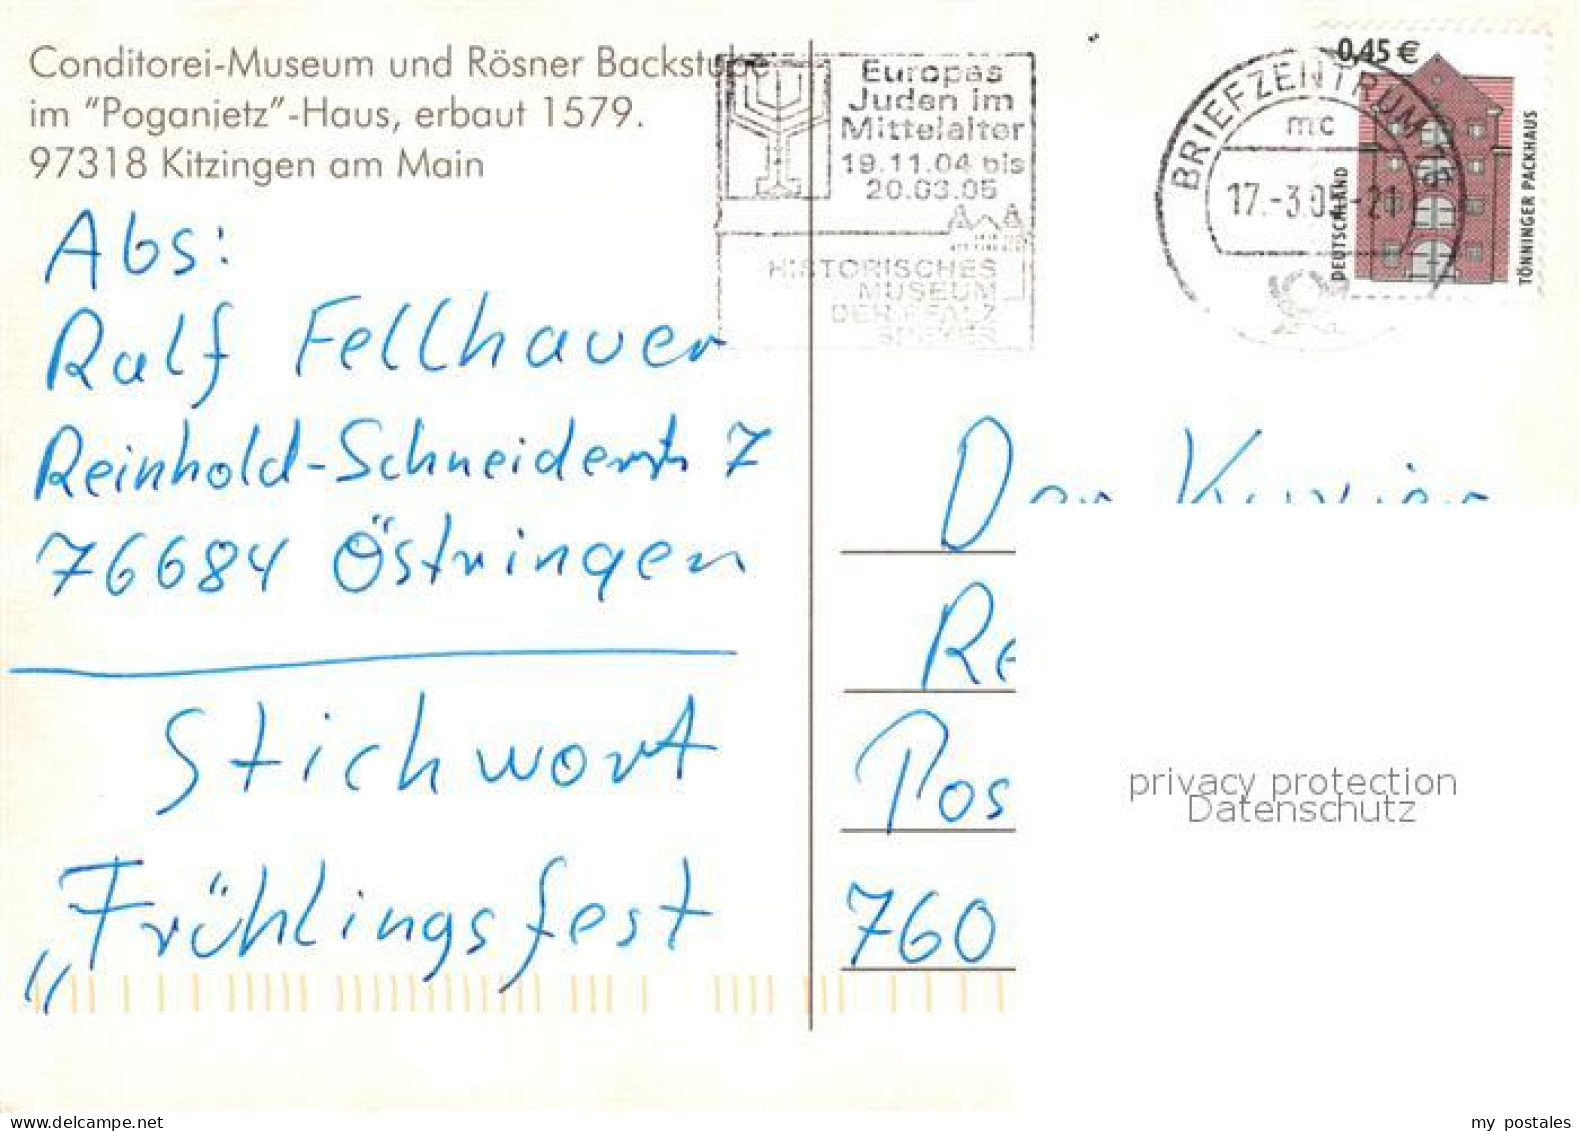 Conditorei-Museum und Rösner Backstube
im "Poganietz"-Haus, erbaut 1579.
97318 Kitzingen am Main
Abs:
Ralf Fellhauer
Reinhold-Schneiderstr 7
76684 Östringen
Stichwort
„Frühlingsfest
Europas
Juden im
Mittelalter
19.11.04 bis
20.03.05
HISTORISCHES
MUSEUM
DER PFALZ
SPEYER
BRIEFZENTRUM
mc
17.-3.05-21
0,45 €
DEUTSCHLAND
TÖNNINGER PACKHAUS
Re
Pos
760
privacy protection
Datenschutz
my postales